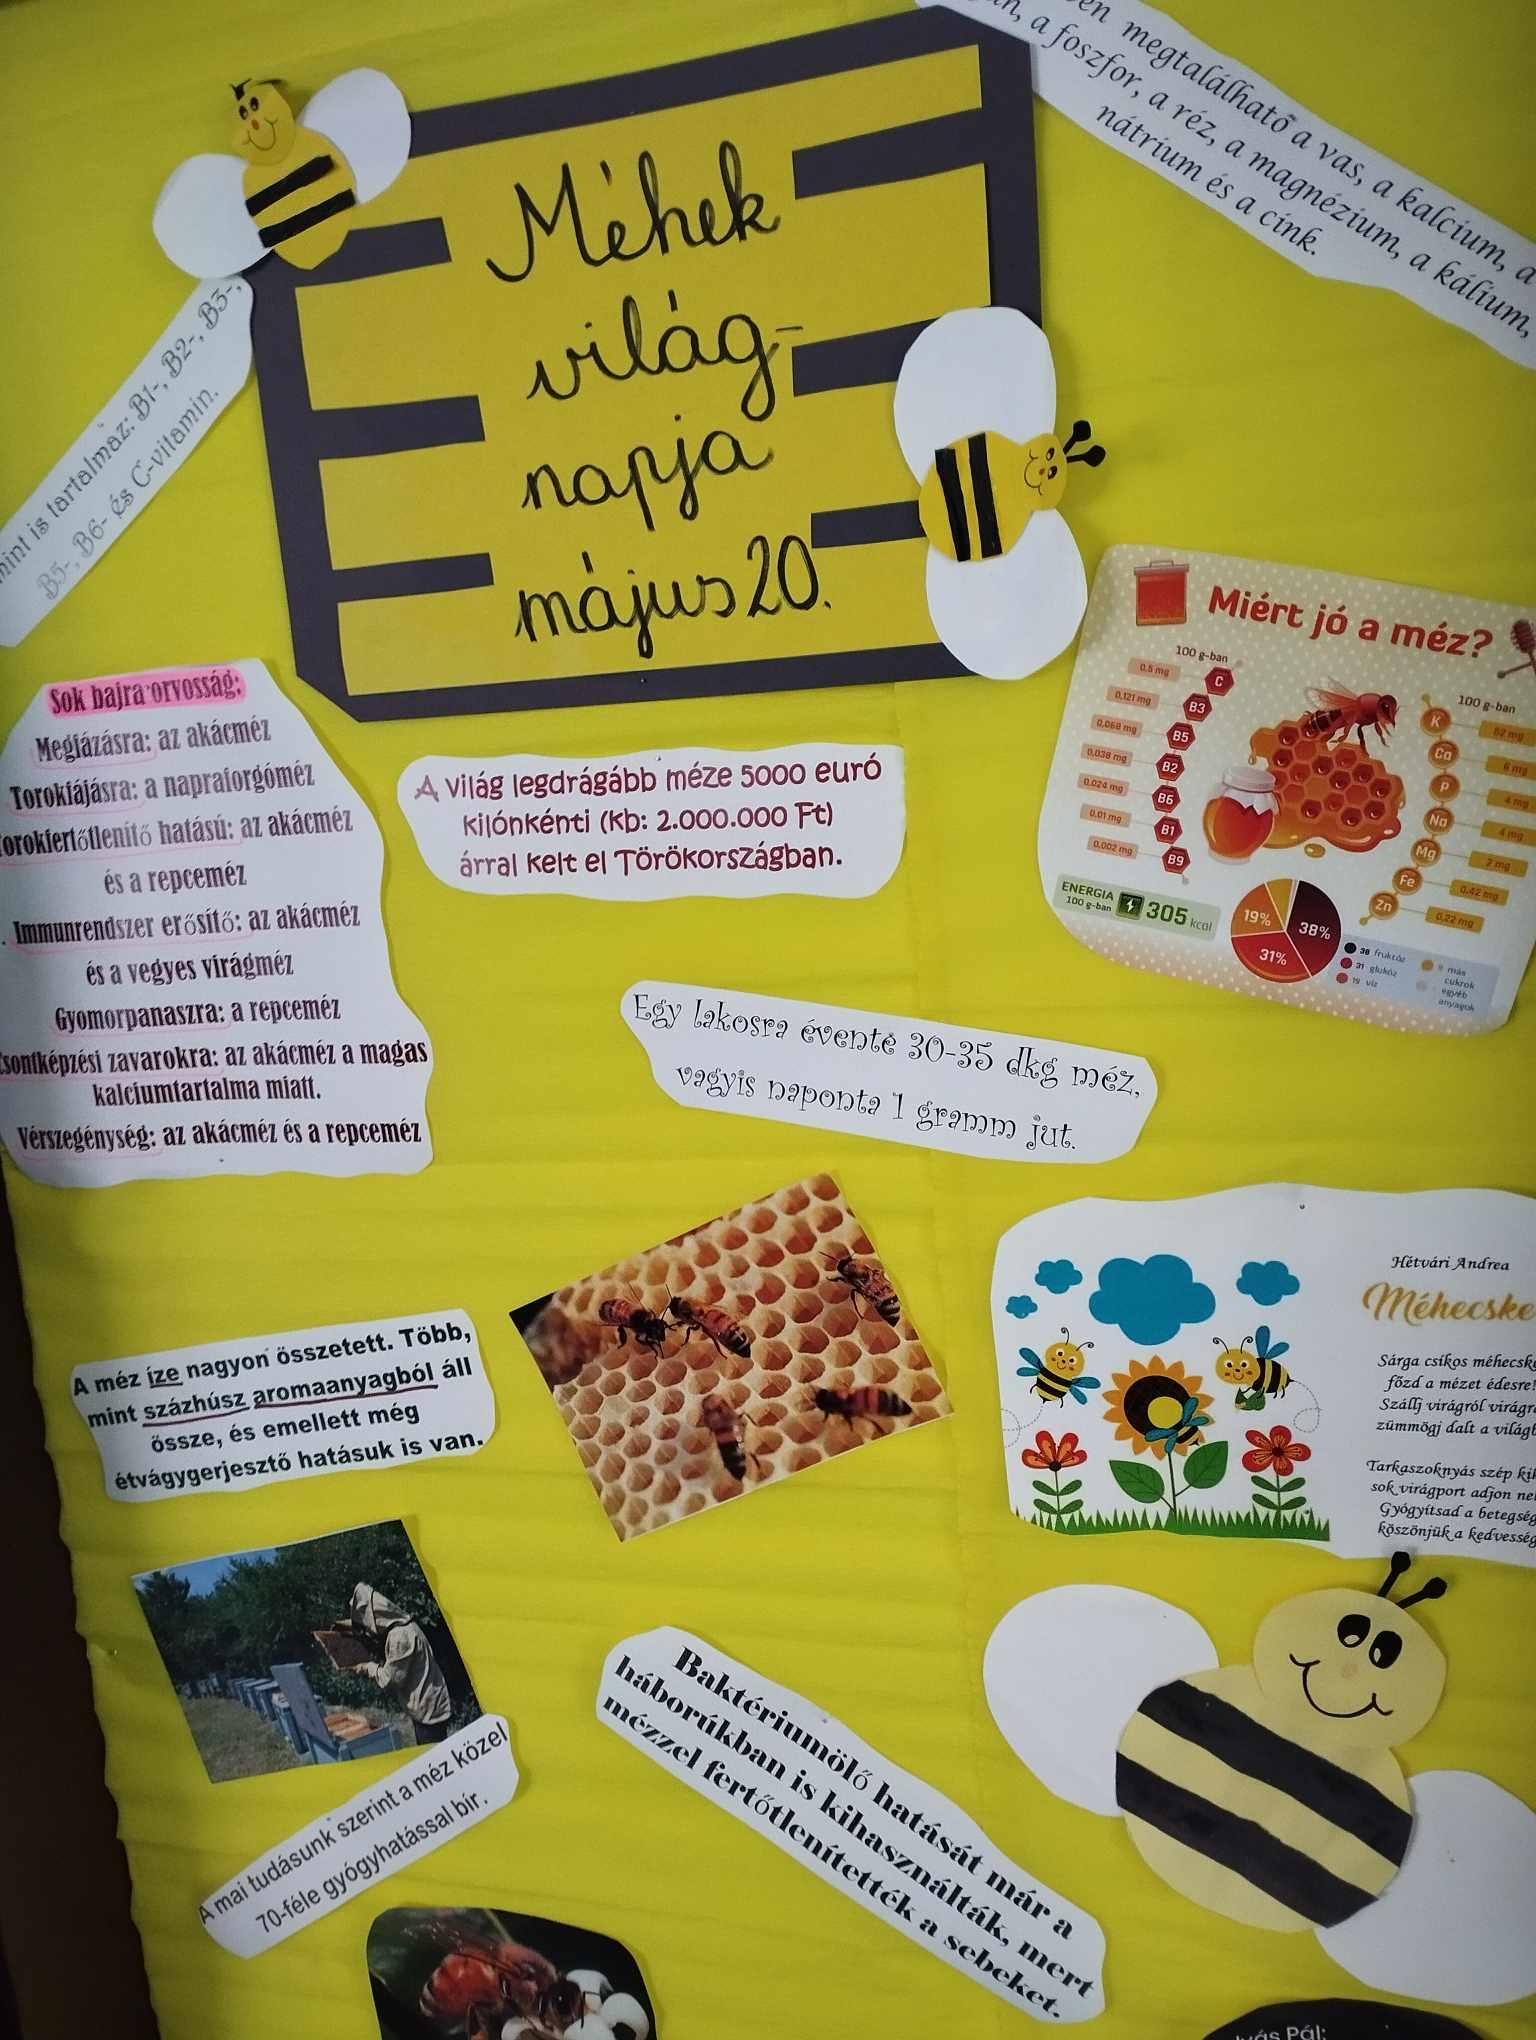 megtalálható a vas, a kalcium, a
a foszfor, a réz, a magnézium, a kálium,
nátrium és a cink.
Méhek
világ-
napja
május 20.
is tartalmaz: B1-, B2-, B3-,
B5-, B6- és C-vitamin.
Sok bajra orvosság:
Megfázásra: az akácméz
Torokfájásra: a napraforgóméz
és a repceméz
Immunrendszer erősítő: az akácméz
és a vegyes virágméz
Gyomorpanaszra: a repceméz
zavarokra: az akácméz a magas
kalciumtartalma miatt.
Vérszegénység: az akácméz és a repceméz
A világ legdrágább méze 5000 euró
kilónkénti (kb: 2.000.000 Ft)
árral kelt el Törökországban.
Miért jó a méz?
100 g-ban
0,5 mg C
0,121 mg B3
0,068 mg B5
0,038 mg B2
0,024 mg B6
0,01 mg B1
0,002 mg B9
100 g-ban
K 52 mg
Ca 6 mg
P 4 mg
Na 4 mg
Mg 2 mg
Fe 0,42 mg
Zn 0,22 mg
ENERGIA
100 g-ban
305 kcal
19%
38%
31%
38 fruktóz
31 glukóz
19 víz
más
cukrok
egyéb
anyagok
Egy lakosra évente 30-35 dkg méz,
vagyis naponta 1 gramm jut.
Hétvári Andrea
Sárga csíkos
főzd a mézet
Szállj virágról
zümmögj dalt a
Tarkaszoknyás szép
sok virágport adjon
Gyógyítsad a
köszönjük a
A méz íze nagyon összetett. Több,
mint százhúsz aromaanyagból áll
össze, és emellett még
étvágygerjesztő hatásuk is van.
A mai tudásunk szerint a méz közel
70-féle gyógyhatással bír.
Baktériumölő hatását már a
háborúkban is kihasználták, mert
mézzel fertőtlenítették a sebeket.
Pál: